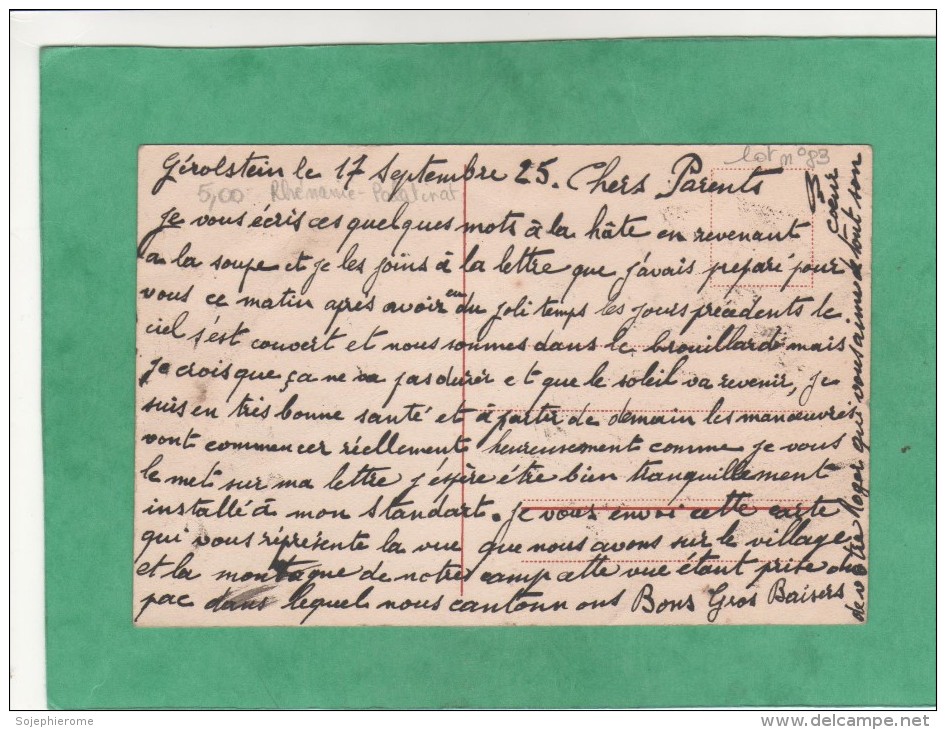 Gérolstein le 17 Septembre 25. Chers Parents
lot n° 83
5,00 Rhénanie-Palatinat
je vous écris ces quelques mots à la hâte en revenant
a la soupe et je les joins à la lettre que j'avais preparé pour
vous ce matin après avoir eu du joli temps les jours précédents le
ciel s'est couvert et nous sommes dans le brouillard mais
je crois que ça ne va pas durer et que le soleil va revenir, je
suis en très bonne santé et à partir de demain les manœuvres
vont commencer réellement heureusement comme je vous
le met sur ma lettre j'éspère être bien tranquillement
installé à mon standart. je vous envoi cette carte
qui vous réprésente la vue que nous avons sur le village
et la montagne de notre camp cette vue étant prise du
pac dans lequel nous cantonnons Bons Gros Baisers
de votre Roger qui vous aime de tout son
cœur
Sojephierome
delcampe.net